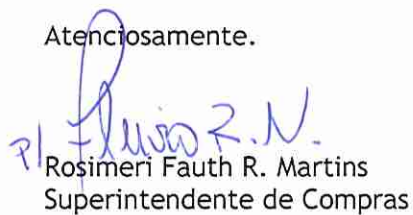 Atenciosamente.
P/ Flavio R. N.
Rosimeri Fauth R. Martins
Superintendente de Compras